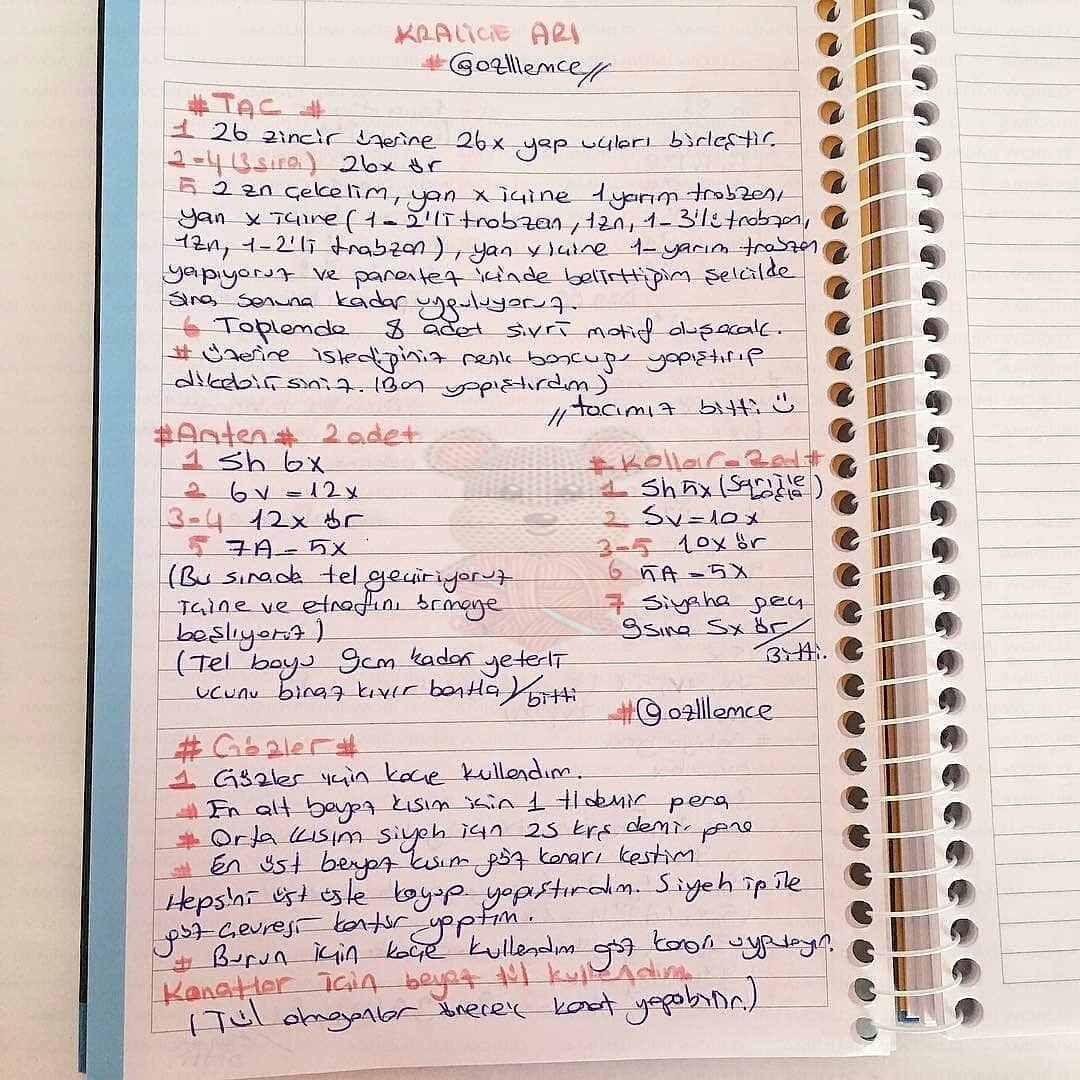 KRALİÇE ARI
#@ozlllemce//
#TAC #
1 26 zincir üzerine 26x yap uçları birleştir.
2-4 (3 sıra) 26x ör
5 2 zn çekelim, yan x içine 1 yarım trabzan,
yan x içine (1-2'li trabzan, 1zn, 1-3'lü trabzan,
1zn, 1-2'li trabzan), yan x içine 1-yarım trabzan
yapıyoruz ve parantez içinde belirttiğim şekilde
sıra sonuna kadar uyguluyoruz.
6 Toplamda 8 adet sivri motif oluşacak.
# üzerine istediğiniz renk boncuğu yapıştırıp
dikebilirsiniz. (Ben yapıştırdım)
//tacımız bitti
#Anten# 2 adet
1 Sh 6x
2 6v = 12x
3-4 12x ör
5 7A = 5x
(Bu sırada tel geçiriyoruz
içine ve etrafını örmeye
başlıyoruz)
(Tel boyu 9cm kadar yeterli
ucunu biraz kıvır bantla)//bitti
#Kollar-2ad#
1 Sh 5x (Sarı ile başla)
2 5v=10x
3-5 10x ör
6 5A=5x
7 Siyaha geç
9 sıra 5x ör//
Bitti.
#@ozlllemce
#Gözler#
1 Gözler için keçe kullandım.
# En alt beyaz kısım için 1 tl demir para
# Orta kısım siyah için 25 krş demir para
# En üst beyaz kısım göz kararı kestim
Hepsini üst üste koyup yapıştırdım. Siyah ip ile
göz çevresi kontür yaptım.
# Burun için keçe kullandım göz kararı uygulayın.
Kanatlar için beyaz tül kullandım.
(Tül olmayanlar örerek kanat yapabilir.)